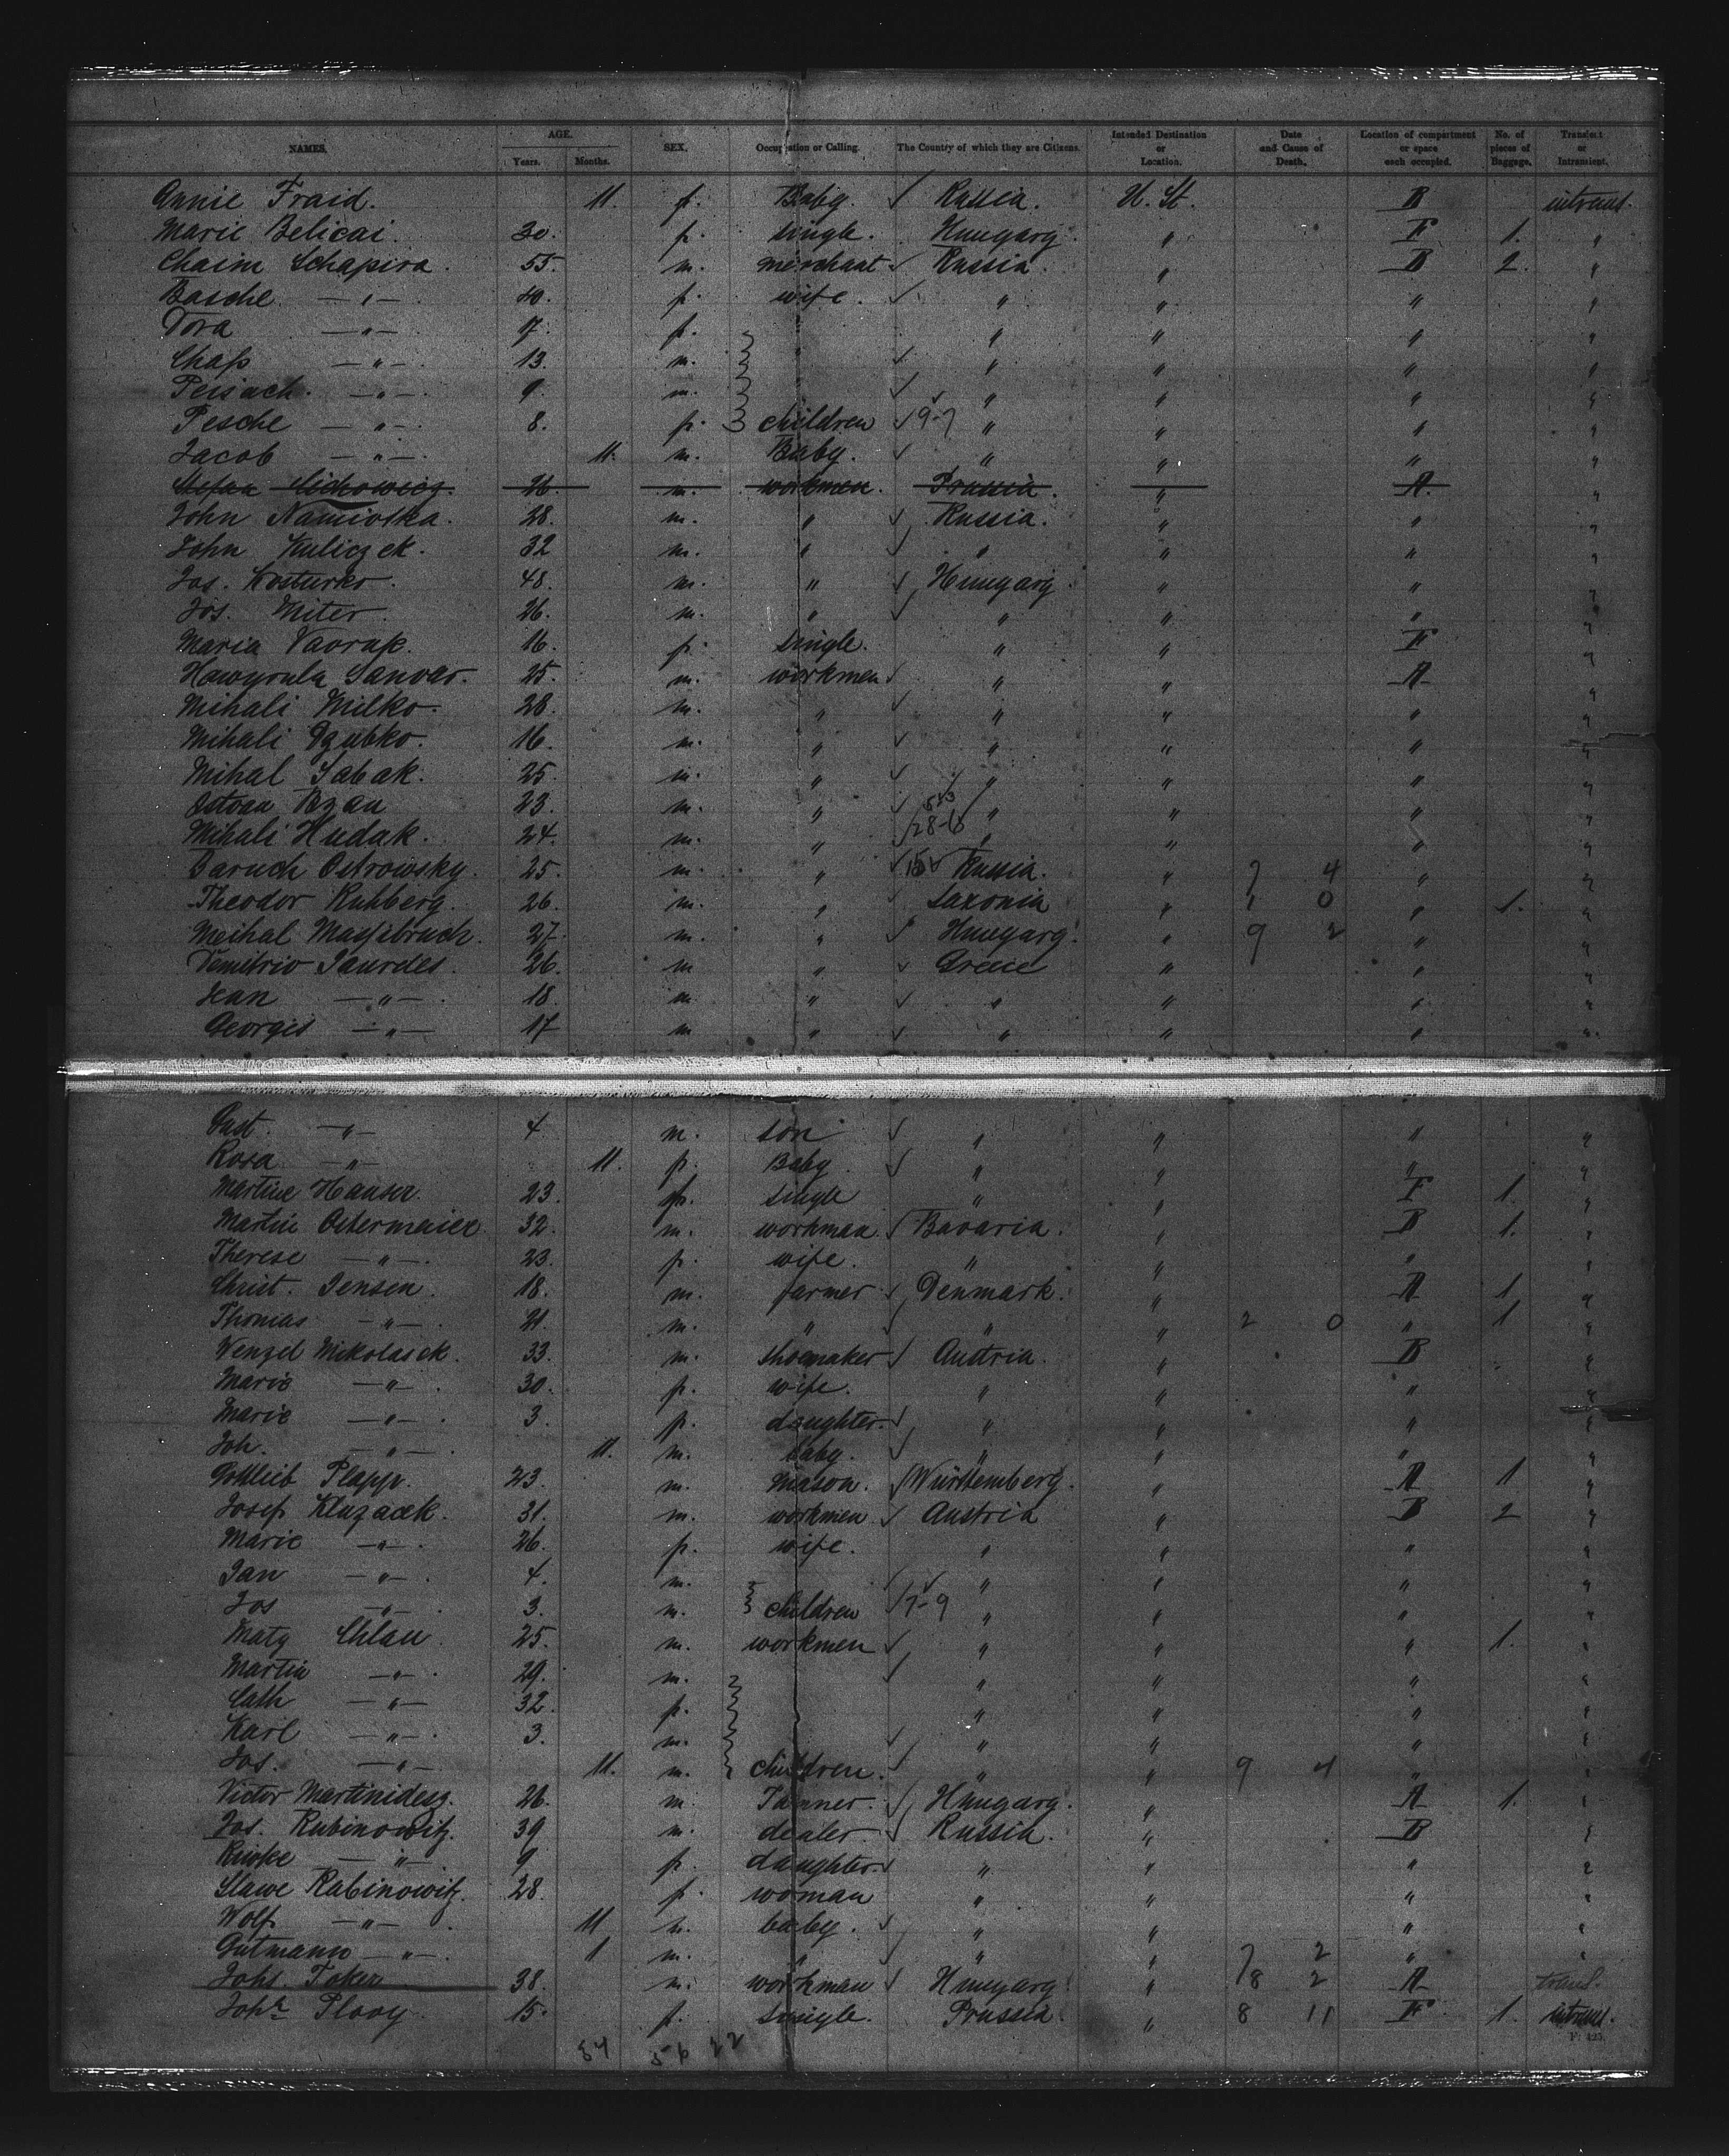 NAMES. AGE. Years. Months. SEX. Occupation or Calling. The Country of which they are Citizens. Intended Destination or Location. Date and Cause of Death. Location of compartment or space each occupied. No. of pieces of Baggage. Transient or Intransient.
Annie Fraid. 11. f. Baby. Russia. U. St. B intrans.
Marie Belicai. 30. f. single. Hungary. " F 1. "
Chaim Schapira. 55. m. merchant. Russia. " B 2. "
Basche —"— 40. f. wife. " " " "
Dora —"— 17. f. " " " "
Chaß —"— 13. m. " " " "
Peisach. —"— 9. m. " " " "
Pesche —"— 8. f. children 9-7 " " " "
Jacob —"— 11. m. Baby. " " " "
Stefan Cichowicz. 26. m. workmen. Prussia. " A. "
John Namiotka. 28. m. " Russia. " " "
John Kuliczek. 32 m. " " " " "
Jos. Kosturko. 48. m. " Hungary. " " "
Jos. Miter. 26. m. " " " " "
Maria Vavrak. 16. f. single. " " F "
25. m. workmen " " A "
Mihali Milko. 28. m. " " " " "
Mihali Dzubko. 16. m. " " " " "
Mihal Sabak. 25. m. " " " " "
Istvan Bzan 23. m. " " " " "
Mihali Hudak. 24. m. " 28-6 " " " "
Baruch Ostrowsky. 25. m. " 15 Russia. " 7 4 " "
Theodor Ruhberg. 26. m. " Saxonia " 1 0 " 1. "
Meihal 27. m. " Hungary. " 9 2 " "
Demitrio Saurdes. 26. m " Greece " " "
Jean —"— 18. m. " " " " "
Georgis —"— 17 m " " " " "
Gust. —"— 4 m. son " " " "
Rosa —"— 11. f. Baby. " " " "
Martine Hauser. 23. f. single " " F 1. "
Martin Ostermeier 32. m. workman. Bavaria. " B 1. "
Therese —"— 23. f. wife. " " " "
Christ. Jensen. 18. m. farmer Denmark. " A 1. "
Thomas —"— 21. m. " " " 2 0 " 1 "
Wenzel Mikolasek. 33. m. shoemaker Austria. " B "
Marie —"— 30. f. wife. " " " "
Marie —"— 3. f. daughter. " " " "
Joh. —"— 11. m. baby. " " " "
Gottlieb Plapp. 23. m. Mason. Württemberg. " A 1 "
Josef Kluzacek. 31. m. workmen Austria " B 2 "
Marie —"— 26. f. wife. " " " "
Jan —"— 4. m. " " " "
Jos —"— 3. m. children 7-9 " " " "
Maty Chlau 25. m. workmen " " " 1. "
Martin —"— 29. m. " " " "
Cath —"— 32. f. " " " "
Karl —"— 3. m. " " " "
Jos. —"— 11. m. children. " " 9 4 " "
Victor Martinidesz. 26. m. Tanner. Hungary. " A 1. "
Jos. Rubinowitz. 39 m. dealer. Russia. " B "
Rivke —"— 9. f. daughter. " " " "
Slawe Rabinowitz. 28. f. woman " " " "
Wolf —"— 11 m. baby. " " " "
Gutmann —"— 1 m. " " " 7 2 " "
Johs. Foker 38. m. workman Hungary " 18 2 A trans.
Johr Plooy 15. f. single. Prussia. " 8 11 F 1. intrans.
F. 425.
54 56 22